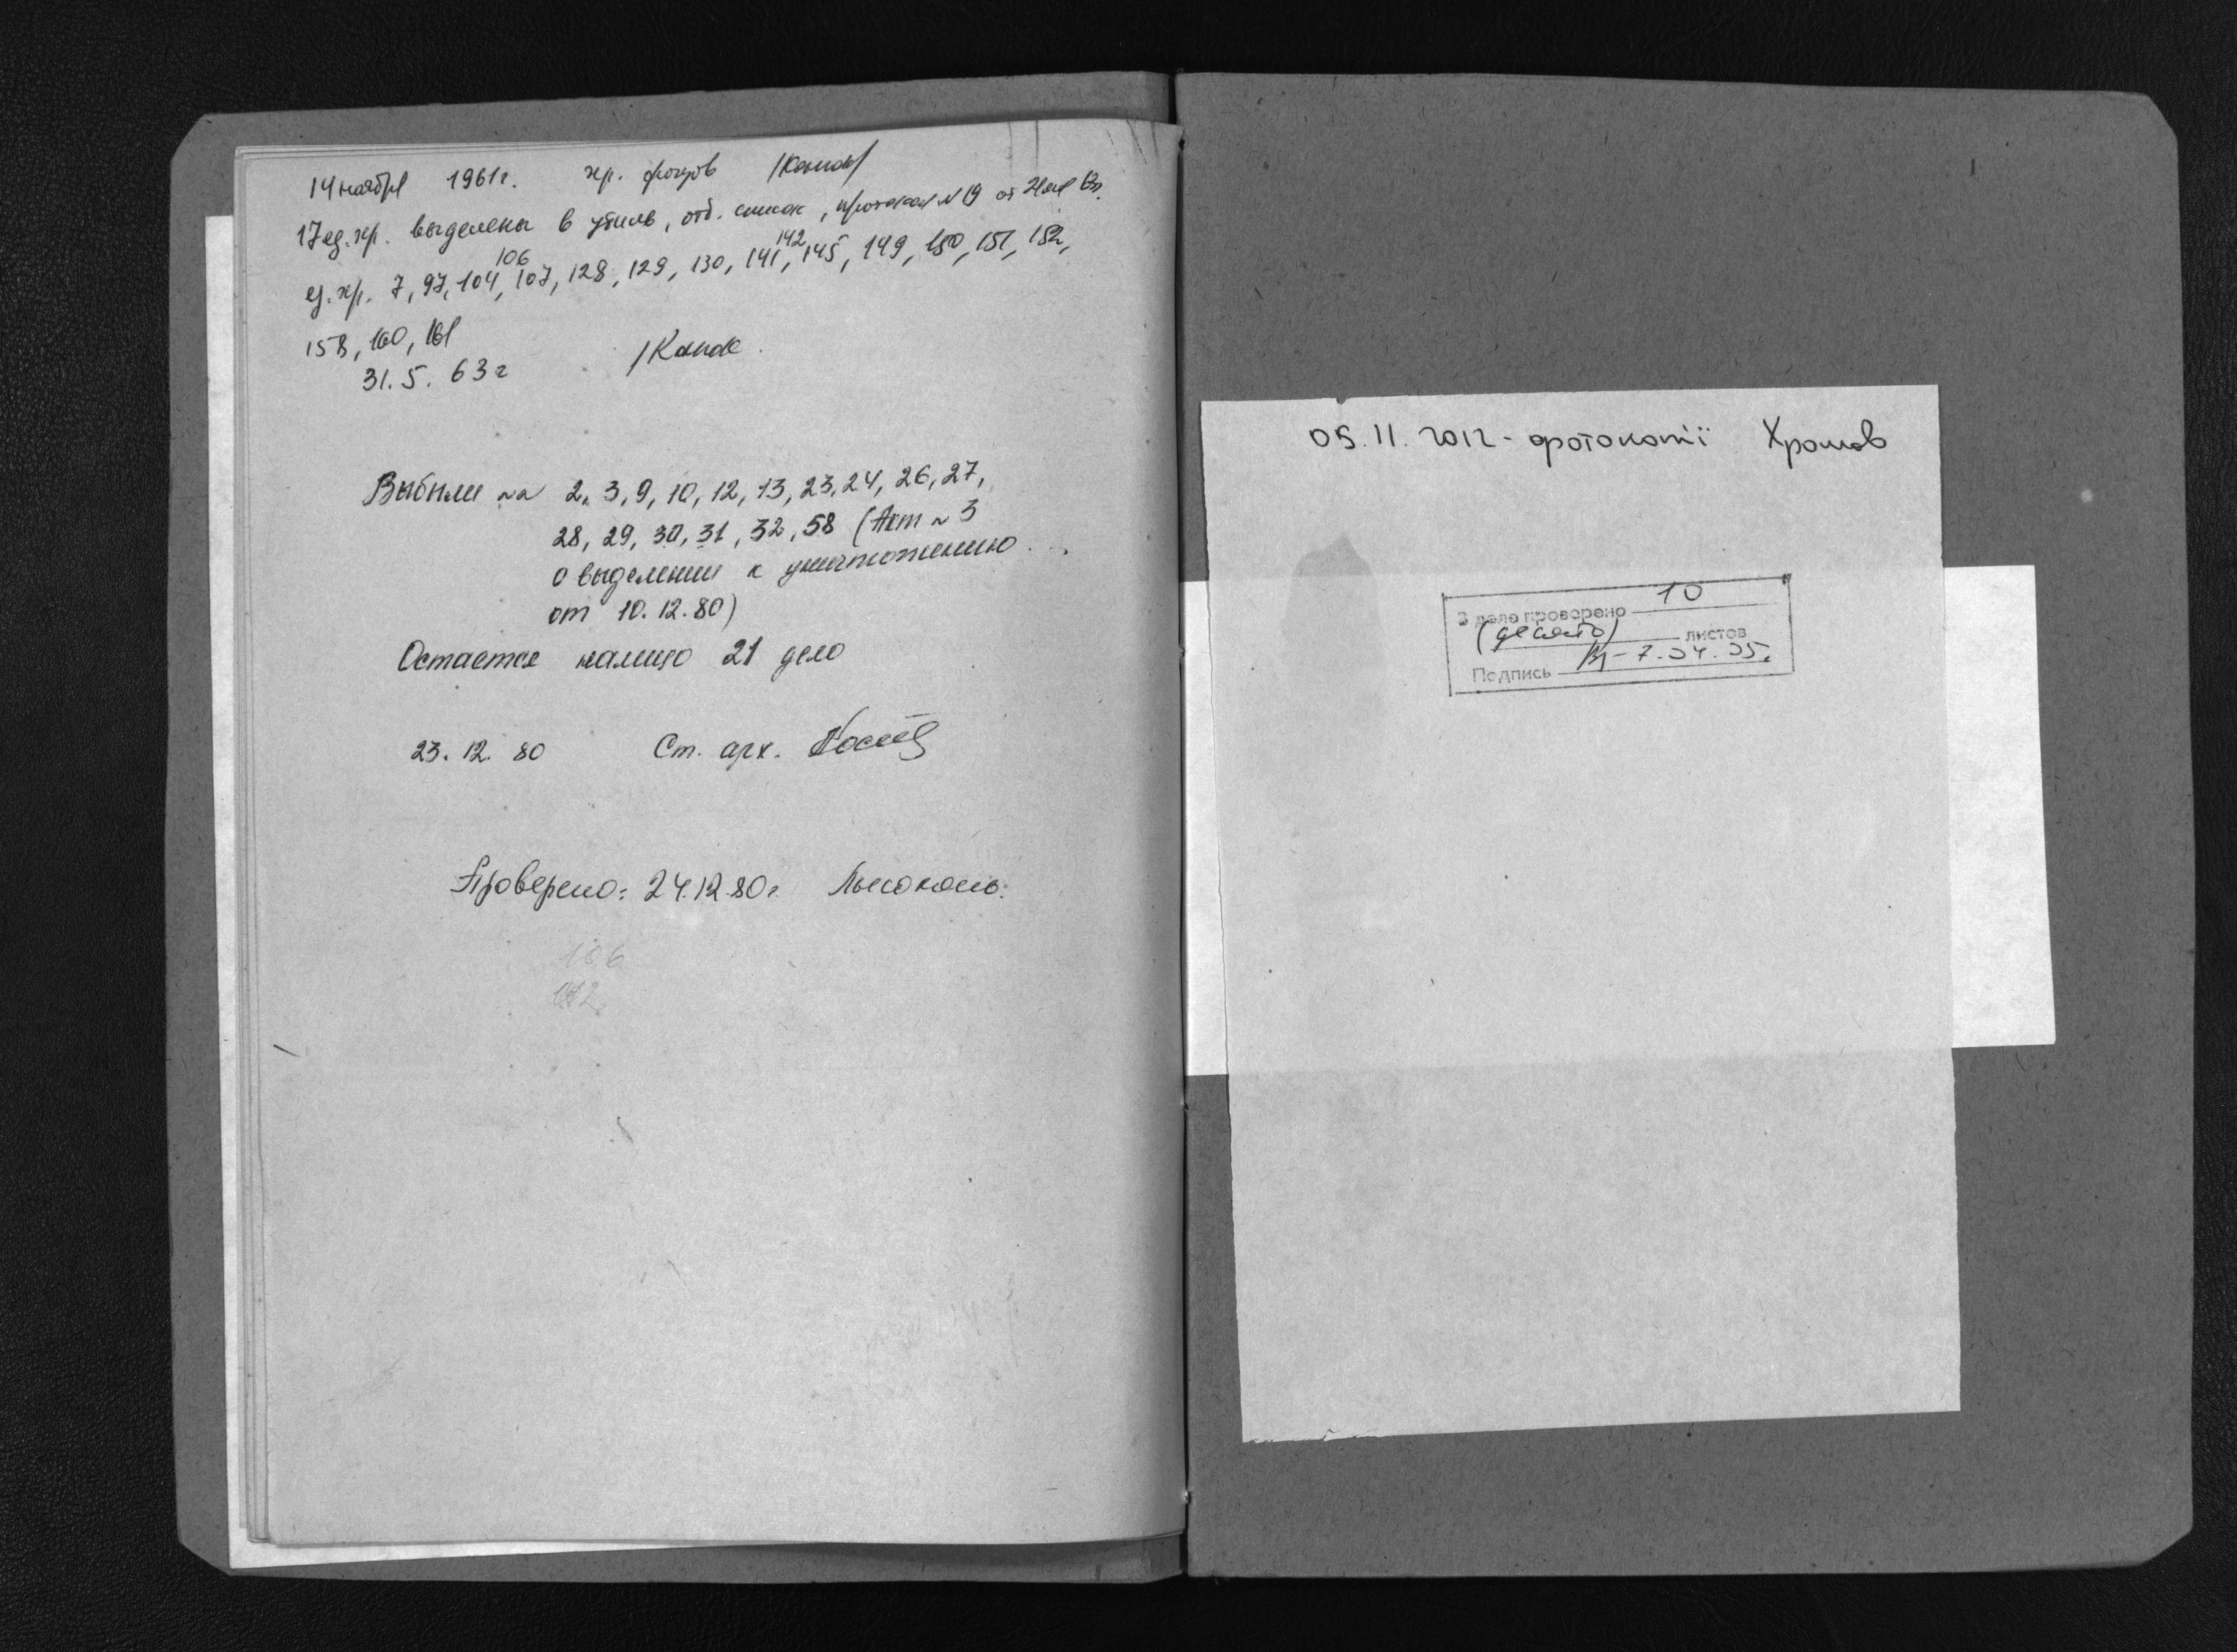 14 ноября 1961г. хр. фондов
17 ед. хр. выделены в утиль, отб. список, протокол N 19 от
106 142
ед. хр. 7, 97, 104, 107, 128, 129, 130, 141, 145, 149, 150, 151, 152,
158, 160, 161
31. 5. 63 г
Выбыли №№ 2, 3, 9, 10, 12, 13, 23, 24, 26, 27,
28, 29, 30, 31, 32, 58 (Акт № 3
о выделении к уничтожению
от 10. 12. 80)
Остается налицо 21 дело
23. 12. 80 Ст. арх.
Проверено: 24.12.80г.
106
142
05. 11. 2012 - фотокопії Хромов
В деле проверено 10
(десять) листов
Подпись 7.04.05.